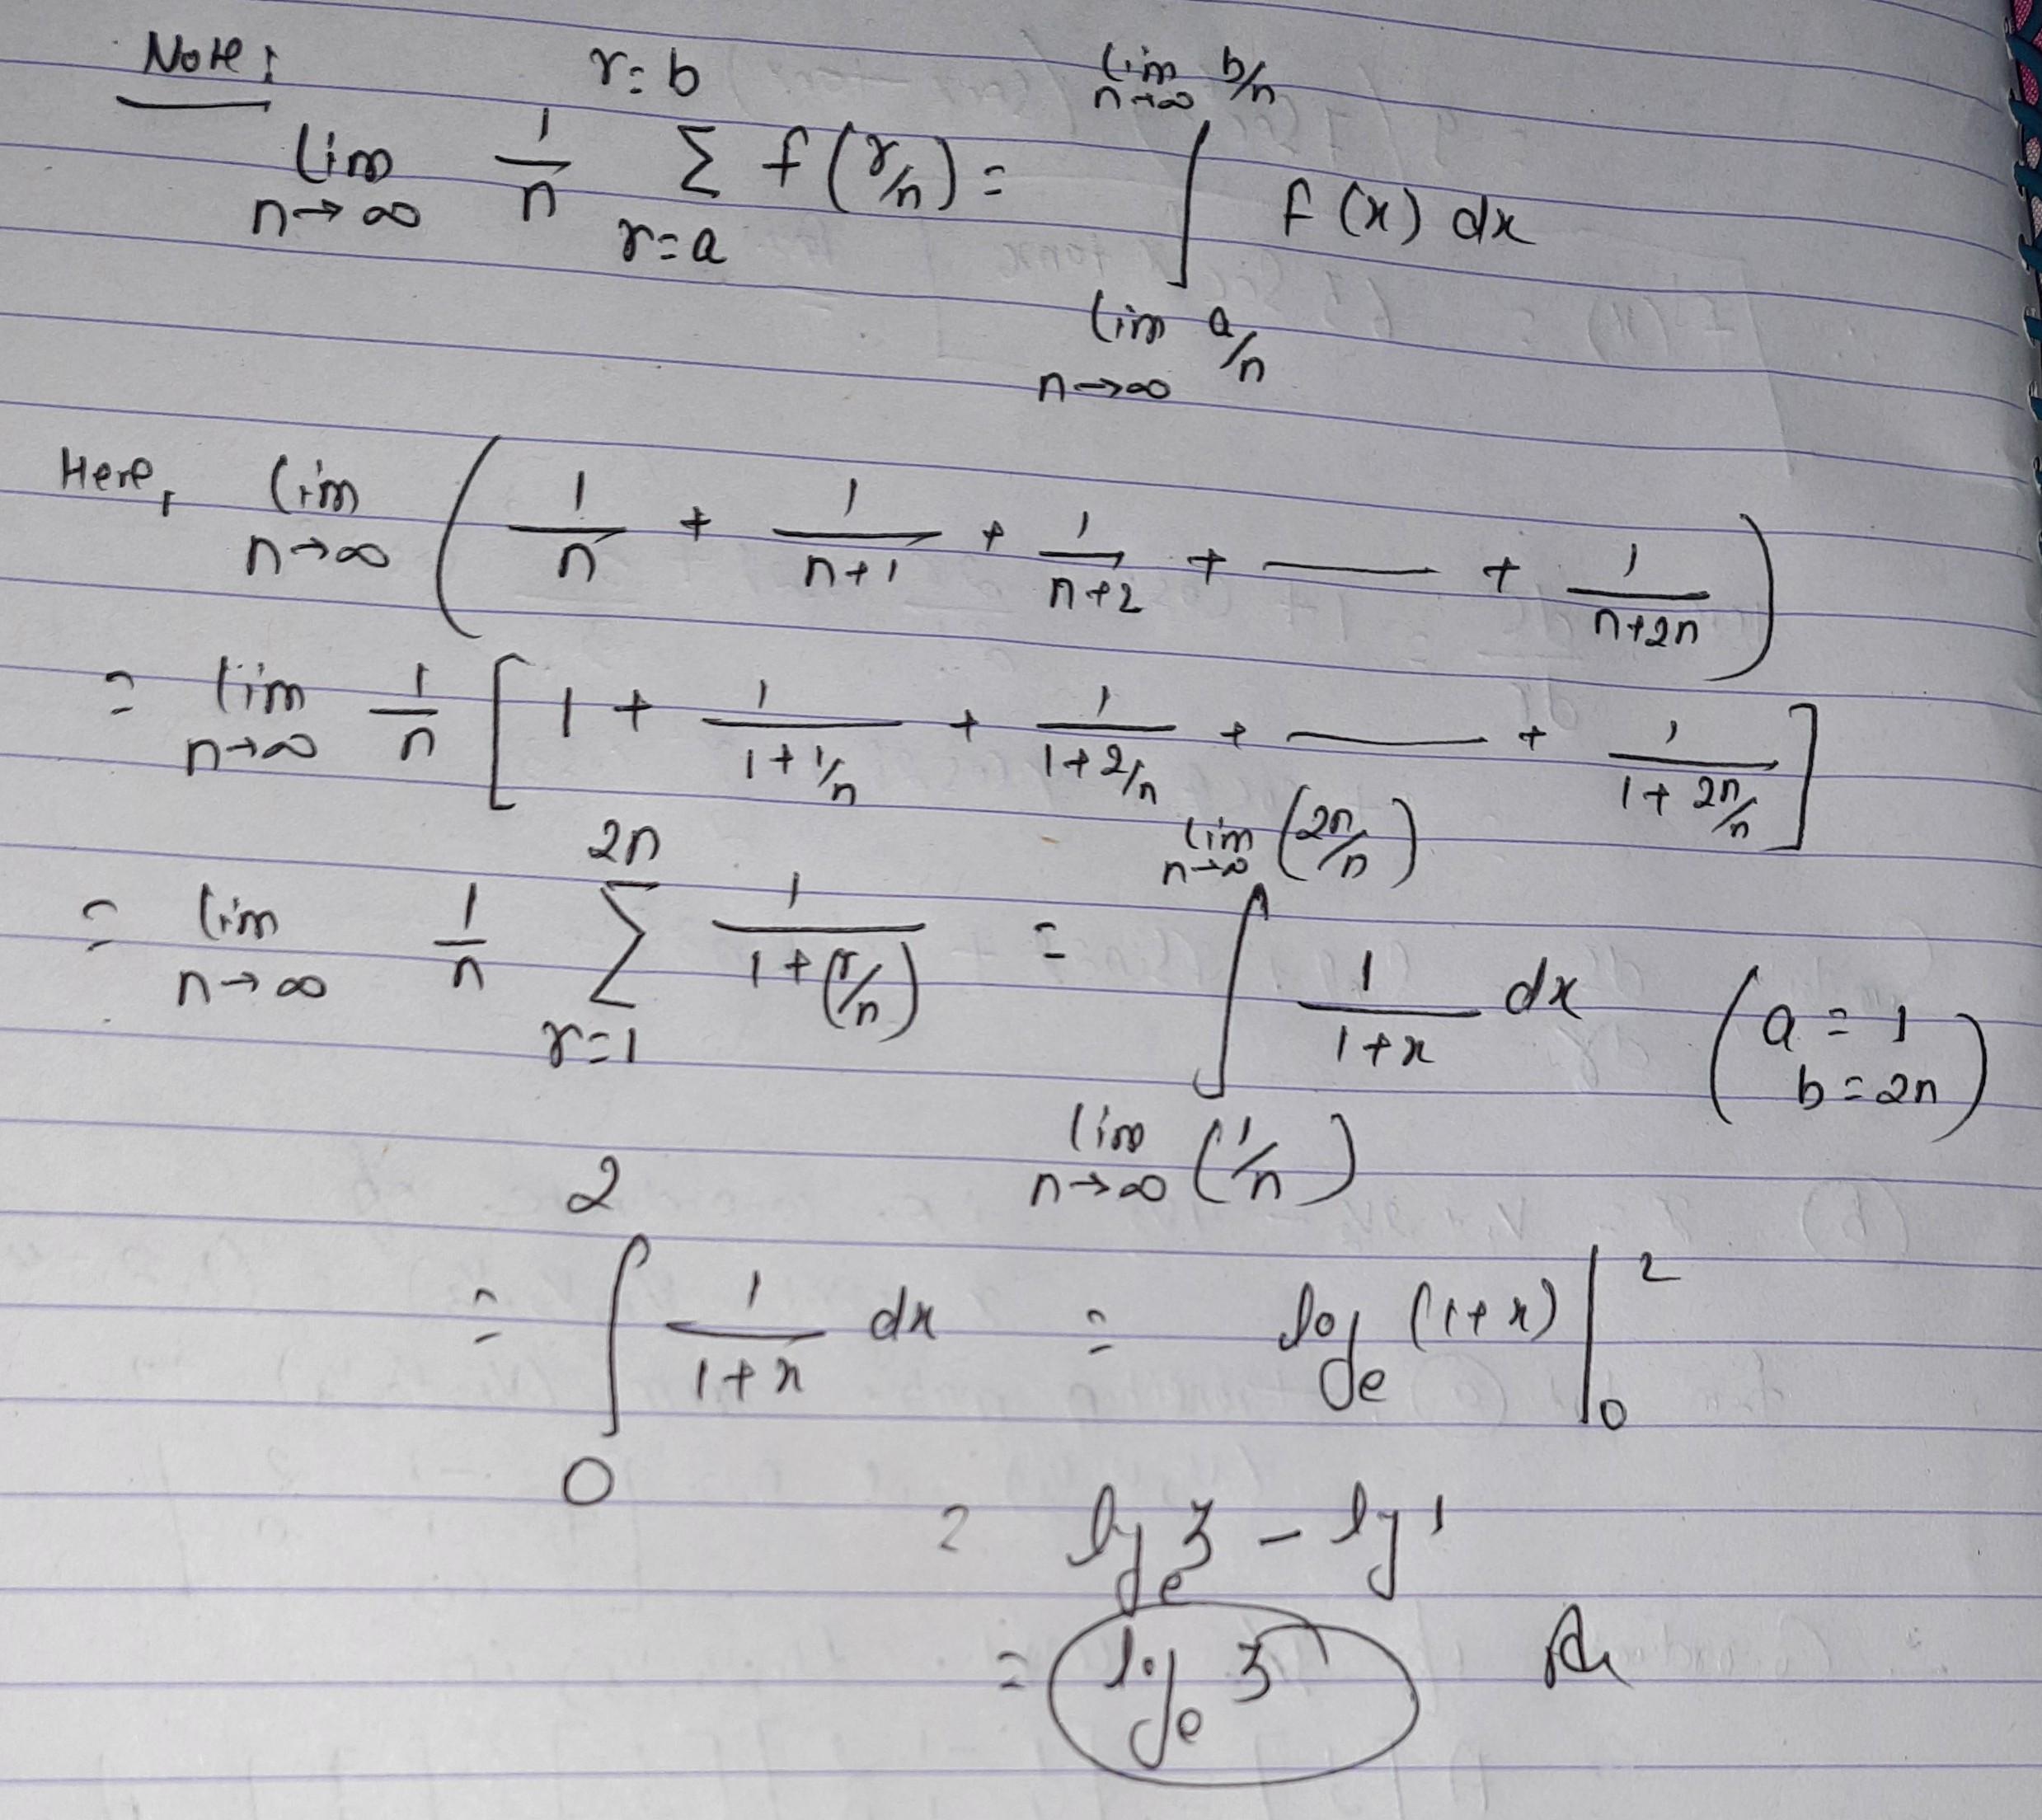 Note:
lim n→∞ 1/n Σ r=a r=b f(r/n) = ∫ lim n→∞ a/n lim n→∞ b/n f(x) dx
Here, lim n→∞ ( 1/n + 1/n+1 + 1/n+2 + — + 1/n+2n )
= lim n→∞ 1/n [ 1 + 1/1+1/n + 1/1+2/n + — + 1/1+2n/n ]
= lim n→∞ 1/n Σ r=1 2n 1/1+(r/n) = ∫ lim n→∞ (1/n) lim n→∞ (2n/n) 1/1+x dx ( a = 1 b = 2n )
= ∫ 0 2 1/1+x dx = log e (1+x) | 0 2
= log e 3 - log 1
= log e 3